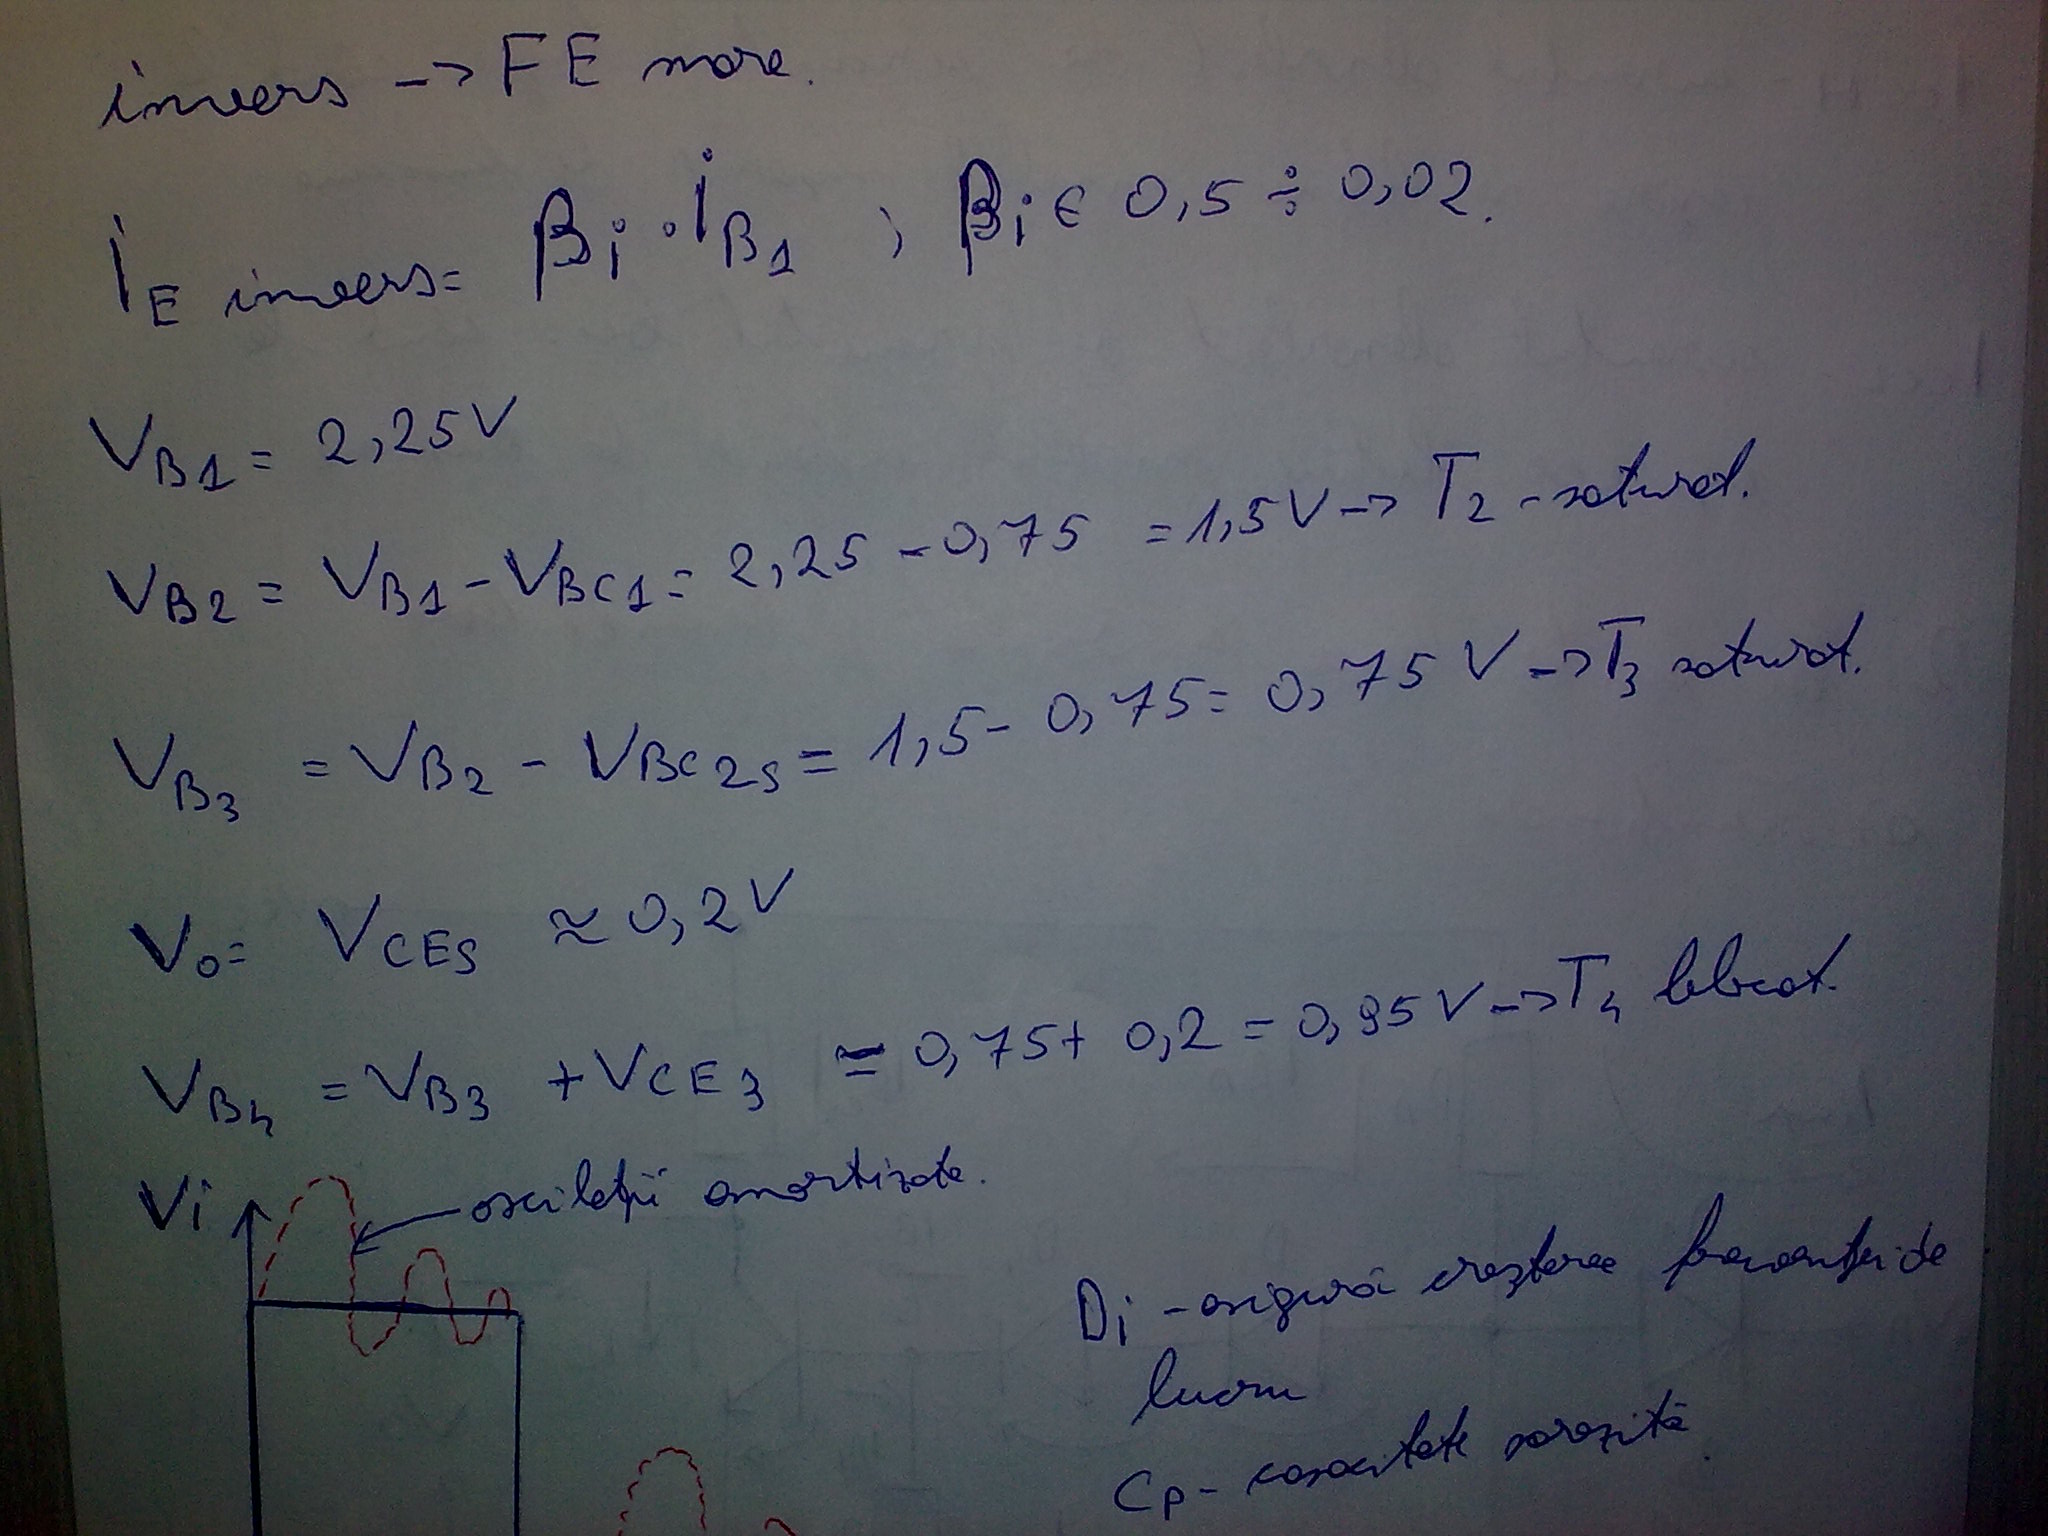 invers -> FE mare.
I_E invers = β_i · I_B1 , β_i ∈ 0,5 ÷ 0,02.
V_B1 = 2,25V
V_B2 = V_B1 - V_BC1 = 2,25 - 0,75 = 1,5V -> T_2 - saturat.
V_B3 = V_B2 - V_BC2S = 1,5 - 0,75 = 0,75 V -> T_3 saturat.
V_O = V_CES ≈ 0,2V
V_B4 = V_B3 + V_CE3 ≃ 0,75 + 0,2 = 0,95 V -> T_4 blocat.
Vi
oscilații amortizate.
D_i - asigură creșterea frecvenței de
lucru
C_p - capacitate parazită